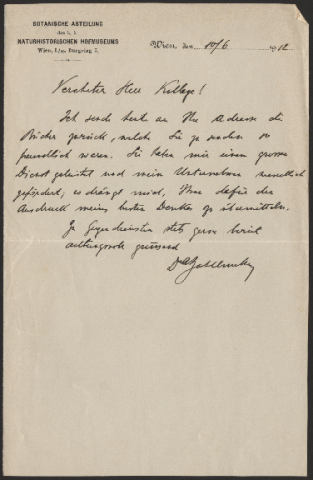 BOTANISCHE ABTEILUNG
des k. k.
NATURHISTORISCHEN HOFMUSEUMS
Wien, I/1, Burgring 7.
Wien, den 10/6 1912
Verehrter Herr Kollege!
Ich sende heute an Ihre Adresse die
Bücher zurück, welche Sie zu senden so
freundlich waren. Sie haben mir einen grossen
Dienst geleistet und mein Unternehmen wesentlich
gefördert; es drängt mich, Ihnen dafür den
Ausdruck meines besten Dankes zu übermitteln.
Zu Gegendiensten stets gerne bereit
achtungsvoll grüssend
Dr AZahlbruckner